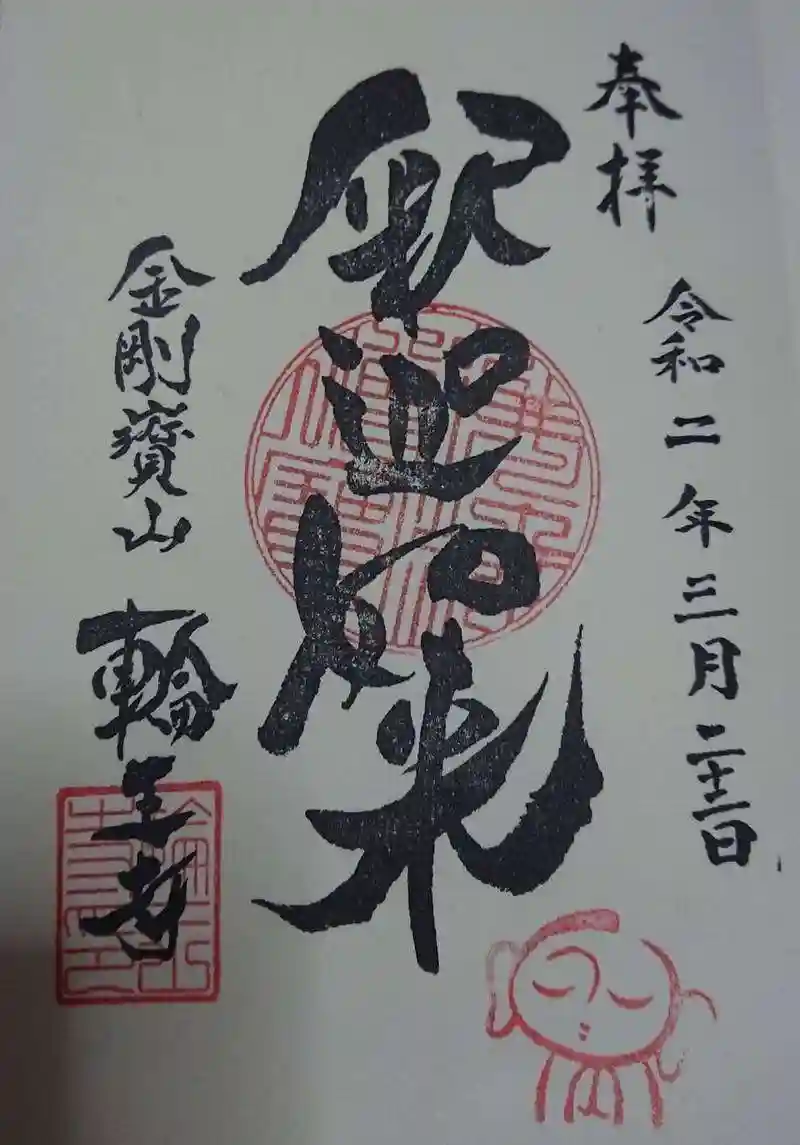 奉拝
令和二年三月二十二日
釈迦如来
金剛寶山
輪王寺